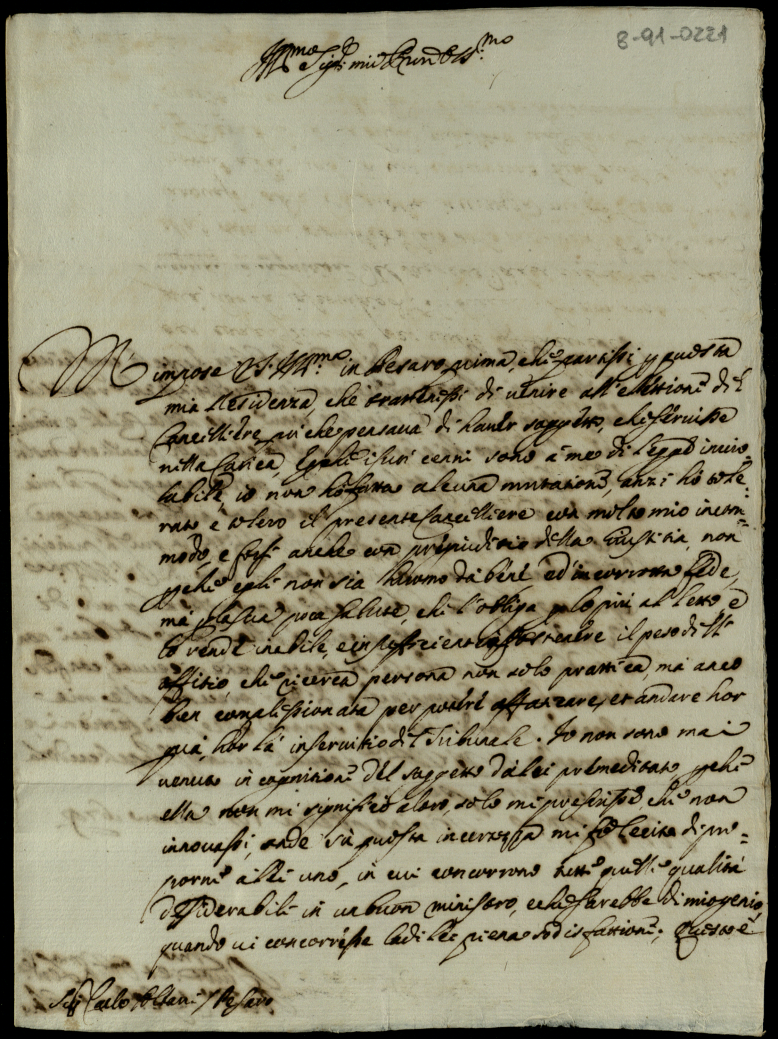 8-91-0221
Ill.mo Sig.r mio P.ron Oss.mo
M'impose V.S. Ill.ma in Pesaro, prima, che partissi p questa
mia Residenza, che trattenessi di venire all'elettione del
Cancelliere, poi che pensava di haver soggetto, che servisse
nella Carica, Et perche i suoi cenni sono à me di legge invio-
labile, io non hò fatto alcuna mutatione, anzi hò tole-
rato, e tolero il presente Cancelliere con molto mio incom-
modo, e forsi anche con pregiuditio della Giustitia, non
perche egli non sia huomo da bene ed incorrotta fede,
mà p la sua poca salute, che l'obliga p lo più al letto, e
lo rende inabile, e insufficiente a sostenere il peso dell'
offitio, che ricerca persona non solo prattica, mà anco
ben complessionata per potere affatigare, et andare hor
quà, hor là in servitio del Tribunale. Io non sono mai
venuto in cognitione del soggetto da lei premeditato perche
ella non mi significò altro, solo mi prescrisse, che non
innovassi, onde sù questa incertezza mi fò lecito di pro-
porne à lei uno, in cui concorrono tutte quelle qualità
desiderabili in un buon ministro, e che sarebbe di mio genio,
quando vi concorresse la di lei piena sodisfattione; Questo è
Sig.r Carlo Pesaro